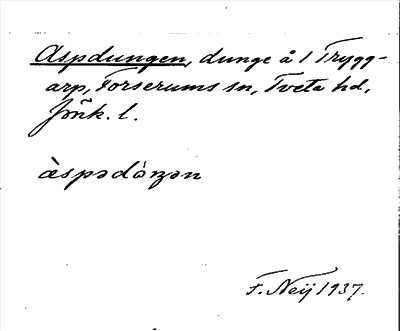 Aspdungen, dunge å 1 Trygg-
arp, Forserums sn, Tveta hd,
Jönk. l.
àspədòŋən
F. Neij 1937.